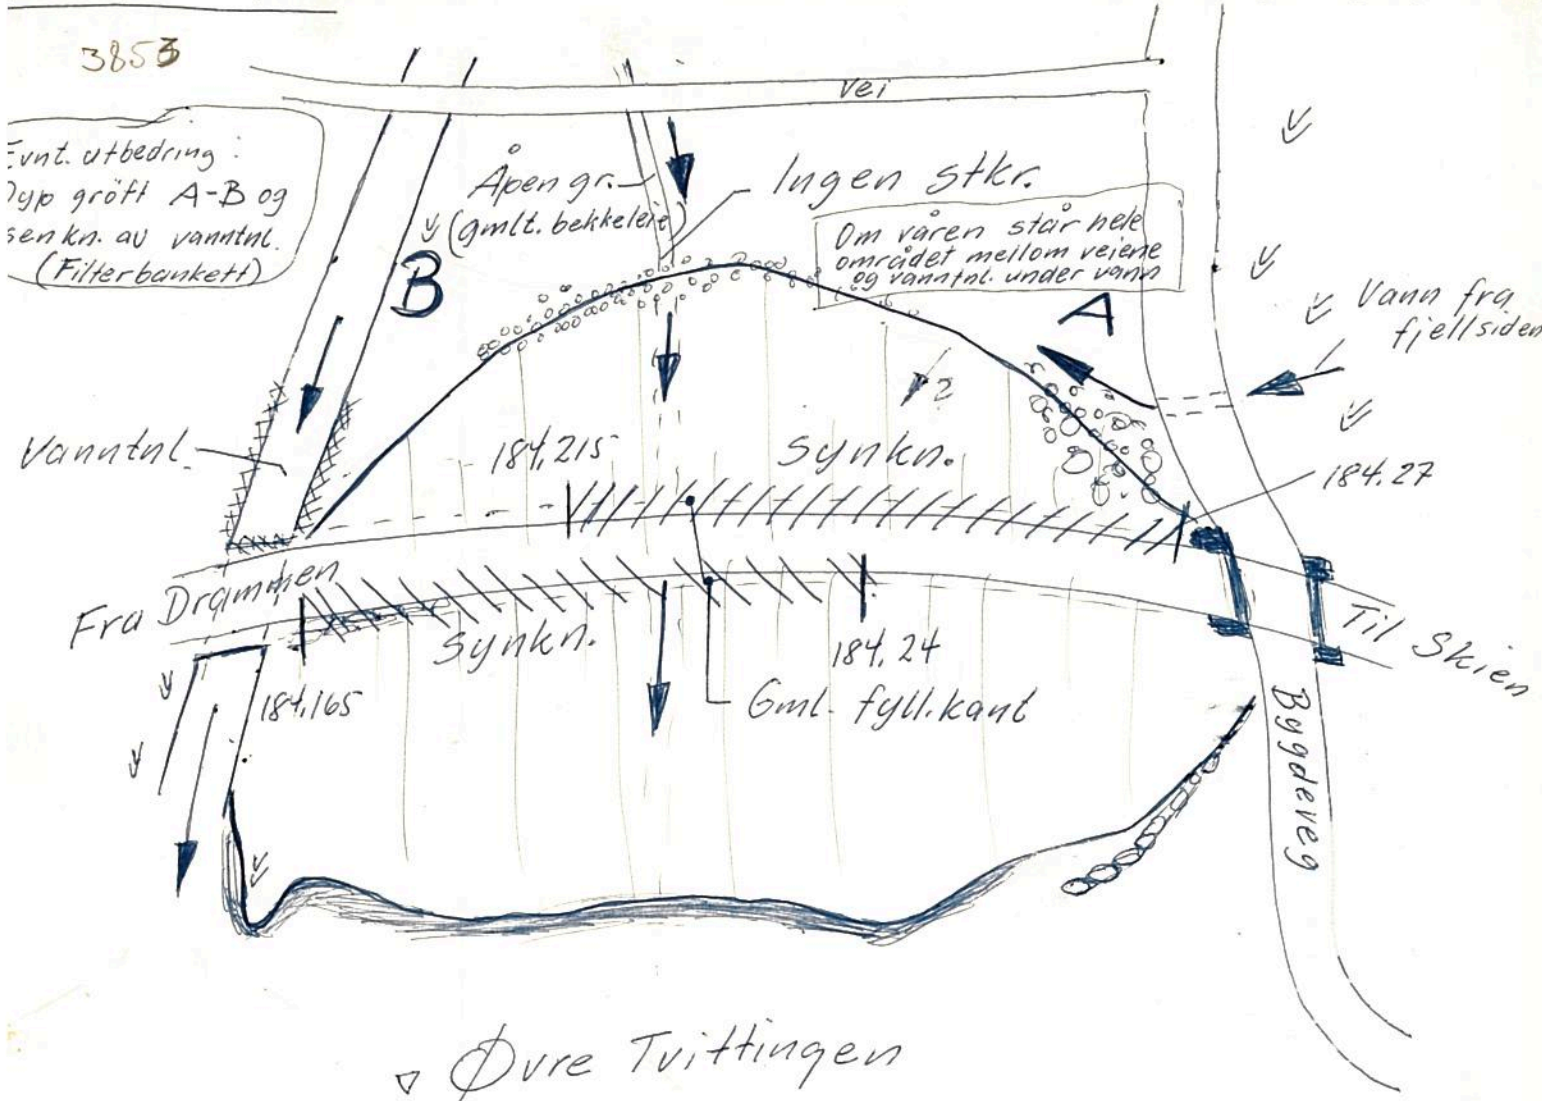 3853
vei
Evnt. utbedring :
Dyp gröft A-B og
senkn. av vanntnl.
(Filterbankett)
Åpen gr.
(gmlt. bekkeleie)
Ingen stkr.
Om våren står hele
området mellom veiene
og vanntnl. under vann
B
A
Vann fra
fjellsiden
2
Vanntnl.
184,215
Synkn.
184.27
Fra Drammen
Synkn.
184,24
184,165
Gml. fyll.kant
Til Skien
Bygdeveg
Øvre Tvittingen